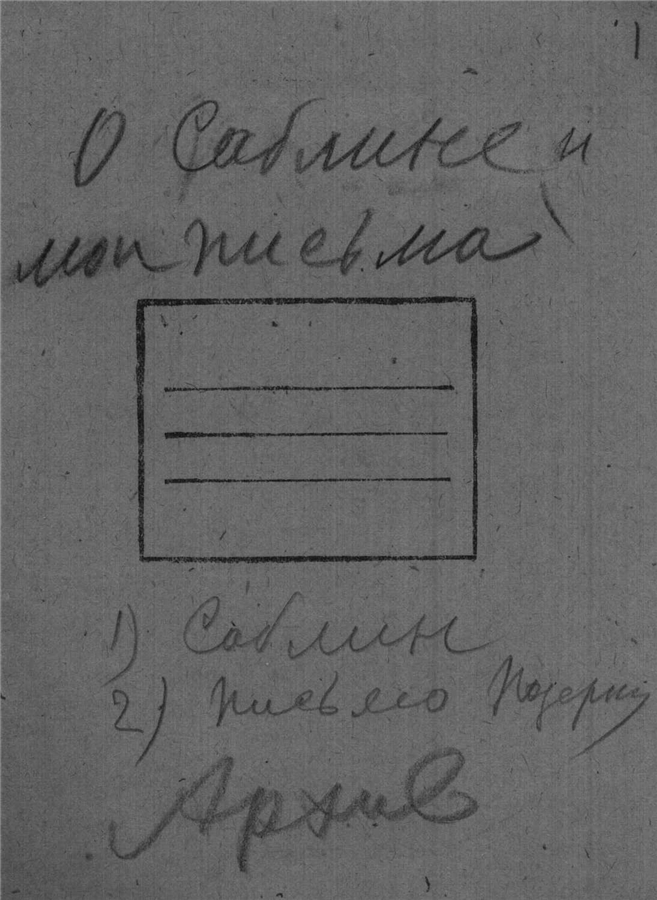 1
О Саблине и
мои письма
1) Саблин
2) письмо Позерну
Архив